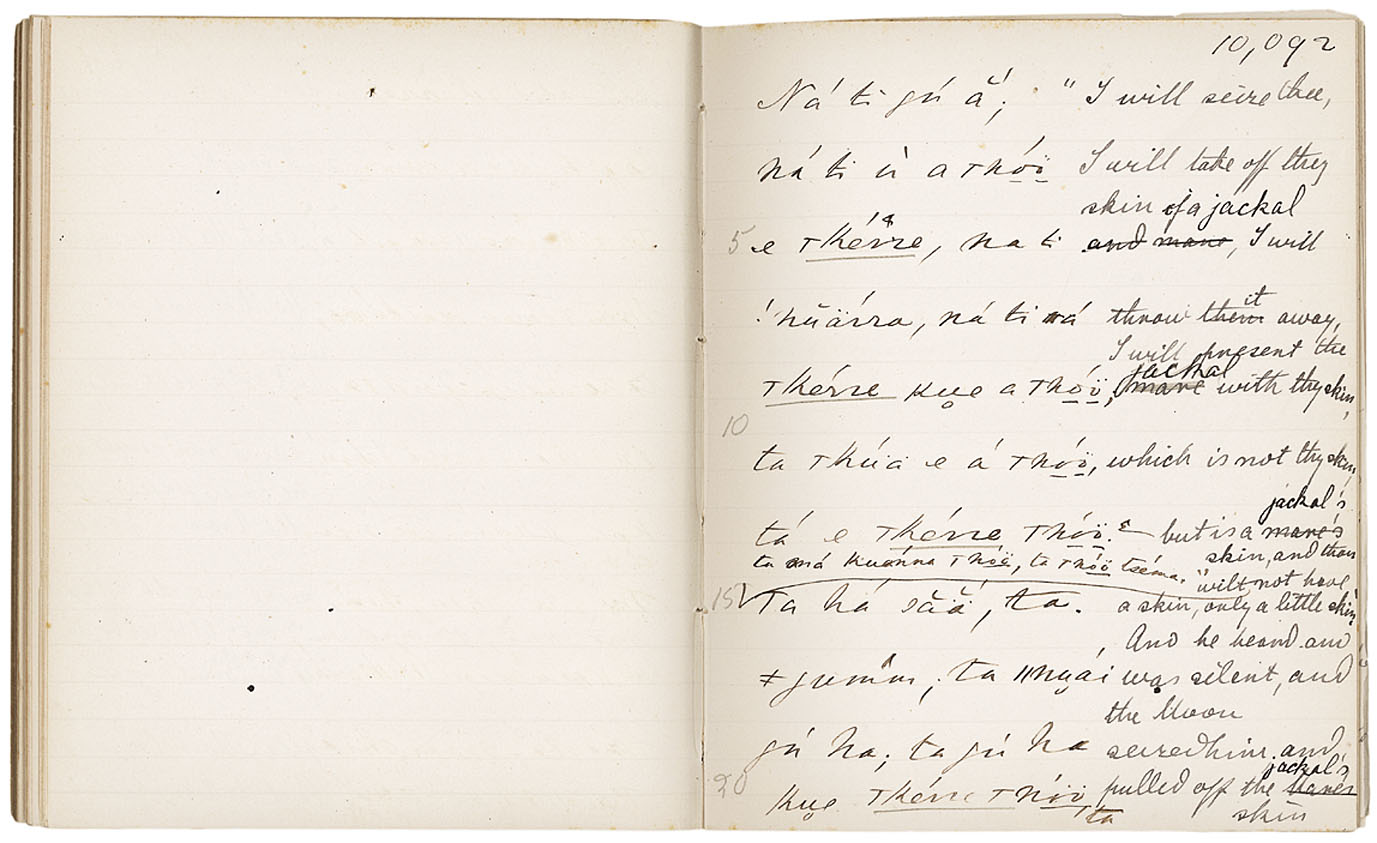 10,092
Ná ti gú ắ; "I will seize thee,
ná ti ù a Thóï I will take off they
skin of a jackal
5 e Tkérre, na ti and mane, I will
!nŭárra, ná ti ná throw them it away,
I will present the
jackal
Tkérre kuẹ a Thóï, mane with thy skin,
10
ta Tkúä e á Thóï, which is not thy skin,
jackal's
tá e Tkérre Thóï." but is a mane's
ta ná kuánna Thóï, ta Thóï tséma." skin, and thou
wilt not have
15 Ta há săắ, ta. a skin, only a little skin."
And he heard and
ǂgumm, ta ǁnu̯ái was silent, and
the Moon
gú ha; ta gú ha seized him, and
jackal's
20 kuẹ Tkérre Thóï, pulled off the hare's
ta skin